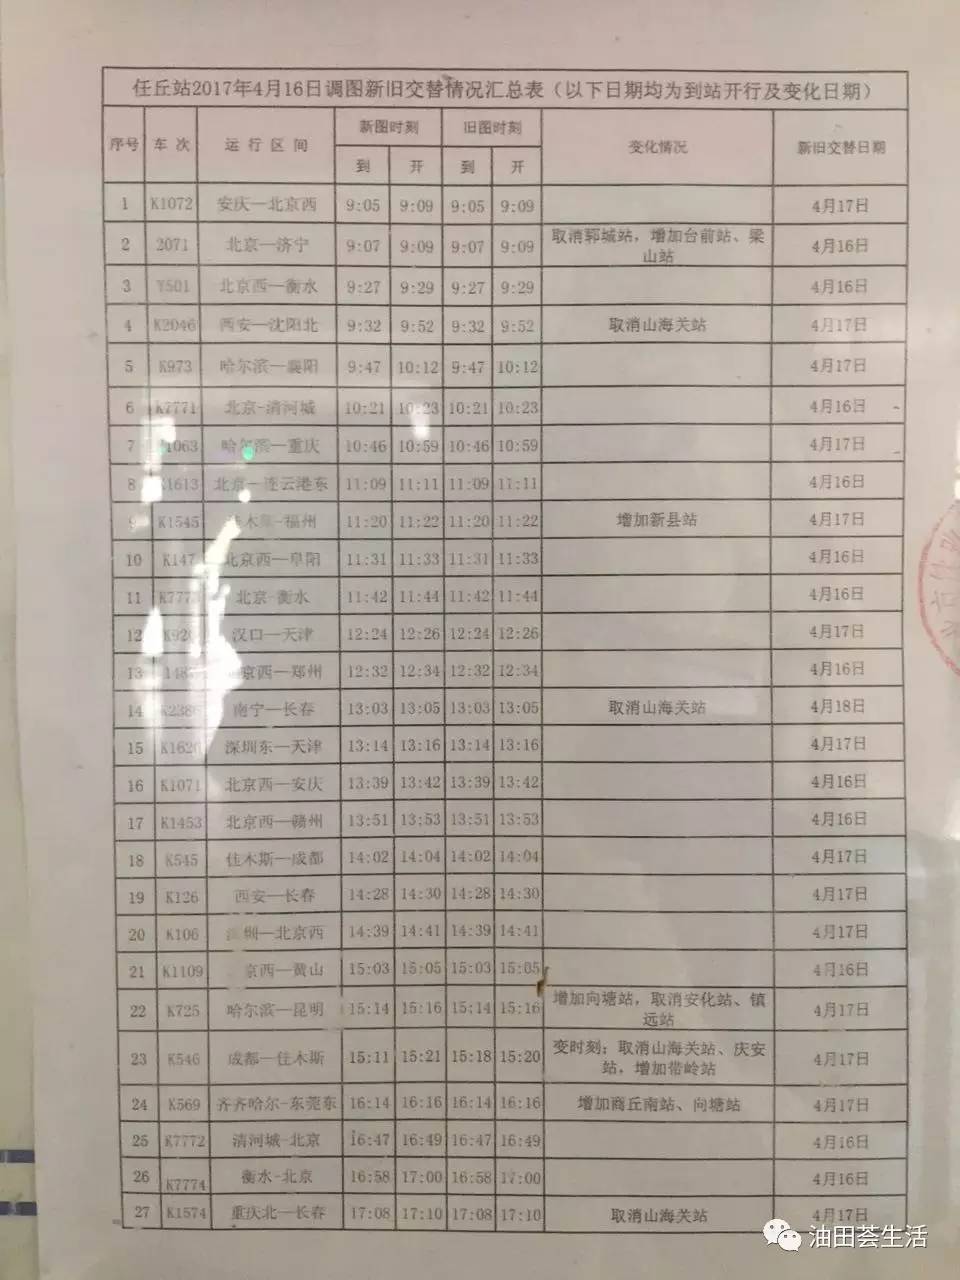 任丘站2017年4月16日调图新旧交替情况汇总表（以下日期均为到站开行及变化日期）
序号 车次 运行区间 新图时刻 旧图时刻 变化情况 新旧交替日期
到 开 到 开
1 K1072 安庆—北京西 9:05 9:09 9:05 9:09 4月17日
2 2071 北京—济宁 9:07 9:09 9:07 9:09 取消郓城站，增加台前站、梁
山站 4月16日
3 Y501 北京西—衡水 9:27 9:29 9:27 9:29 4月16日
4 K2046 西安—沈阳北 9:32 9:52 9:32 9:52 取消山海关站 4月17日
5 K973 哈尔滨—襄阳 9:47 10:12 9:47 10:12 4月17日
6 K7771 北京-清河城 10:21 10:23 10:21 10:23 4月16日
7 哈尔滨—重庆 10:46 10:59 10:46 10:59 4月17日
8 北京—连云港东 11:09 11:11 11:09 11:11 4月16日
9 K1545 福州 11:20 11:22 11:20 11:22 增加新县站 4月17日
10 K147 北京西—阜阳 11:31 11:33 11:31 11:33 4月16日
11 北京-衡水 11:42 11:44 11:42 11:44 4月16日
12 汉口—天津 12:24 12:26 12:24 12:26 4月17日
13 京西—郑州 12:32 12:34 12:32 12:34 4月16日
14 南宁—长春 13:03 13:05 13:03 13:05 取消山海关站 4月18日
15 深圳东—天津 13:14 13:16 13:14 13:16 4月17日
16 K1071 北京西—安庆 13:39 13:42 13:39 13:42 4月16日
17 K1453 北京西—赣州 13:51 13:53 13:51 13:53 4月16日
18 K545 佳木斯—成都 14:02 14:04 14:02 14:04 4月17日
19 K126 西安—长春 14:28 14:30 14:28 14:30 4月17日
20 K106 圳—北京西 14:39 14:41 14:39 14:41 4月17日
21 K1109 京西—黄山 15:03 15:05 15:03 15:05 4月16日
22 K725 哈尔滨—昆明 15:14 15:16 15:14 15:16 增加向塘站，取消安化站、镇
远站 4月17日
23 K546 成都—佳木斯 15:11 15:21 15:18 15:20 变时刻；取消山海关站、庆安
站，增加带岭站 4月17日
24 K569 齐齐哈尔-东莞东 16:14 16:16 16:14 16:16 增加商丘南站、向塘站 4月17日
25 K7772 清河城-北京 16:47 16:49 16:47 16:49 4月16日
26 K7774 衡水-北京 16:58 17:00 16:58 17:00 4月16日
27 K1574 重庆北—长春 17:08 17:10 17:08 17:10 取消山海关站 4月17日
油田荟生活